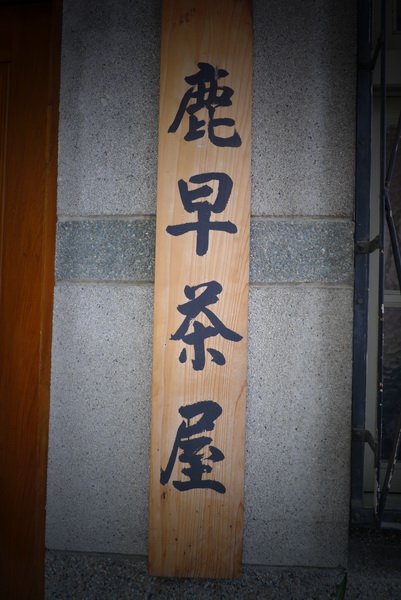 鹿早茶屋